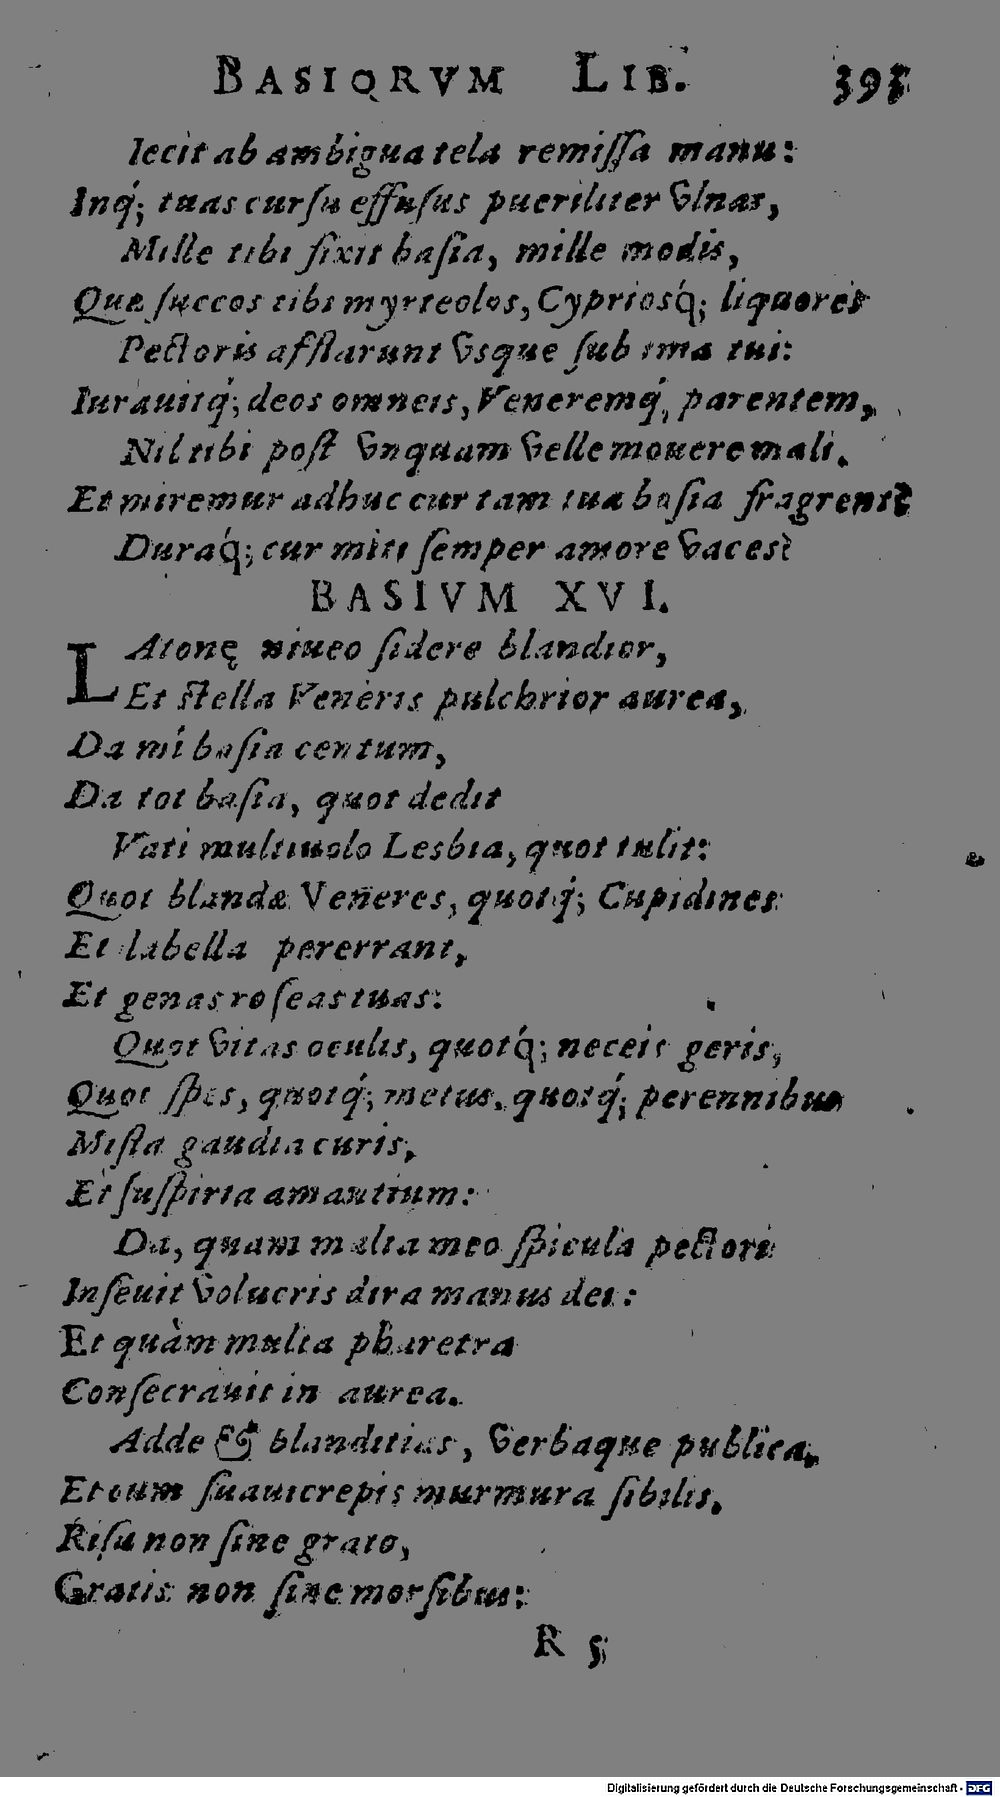 BASIORVM LIB. 393
Iecit ab ambigua tela remiſſa manu:
Inq́; tuas curſu effuſus pueriliter vlnas,
Mille tibi fixit baſia, mille modis,
Quæ ſuccos tibi myrteolos, Cypriosq́; liquores
Pectoris afflarunt vsque ſub ima tui:
Iurauitq́; deos omneis, Veneremq́, parentem,
Nil tibi poſt vnquam velle mouere mali.
Et miremur adhuc cur tam tua baſia fragrent?
Duraq́; cur miti ſemper amore vaces?
BASIVM XVI.
LAtonę niueo ſidere blandior,
Et ſtella Veneris pulchrior aurea,
Da mí baſia centum,
Da tot baſia, quot dedit
Vati multiuolo Lesbia, quot tulit:
Quot blandæ Veneres, quotq́; Cupidines
Et labella pererrant,
Et genas roſeas tuas:
Quot vitas oculis, quotq́; neceis geris,
Quot ſpes, quotq́; metus, quotq́; perennibus
Miſta gaudia curis,
Et ſuſpiria amantium:
Da, quam multa meo ſpicula pectori
Inſeuit volucris dira manus dei:
Et quàm multa pharetra
Conſecrauit in aurea.
Adde & blanditias, verbaque publica,
Et cum ſuauicrepis murmura ſibilis,
Riſu non ſine grato,
Gratis non ſine morſibus:
R 5
Digitalisierung gefördert durch die Deutsche Forschungsgemeinschaft - DFG